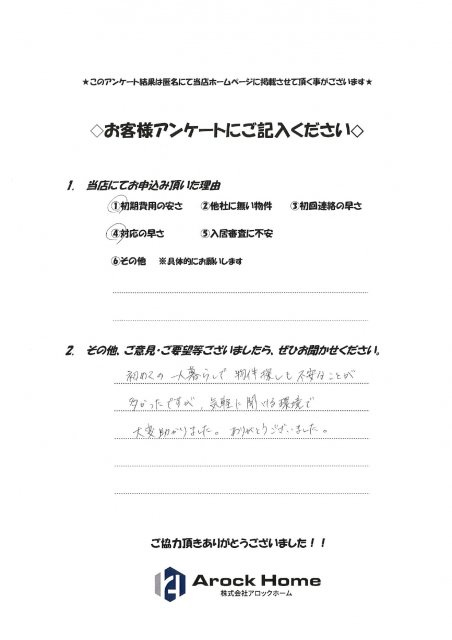 ★このアンケート結果は匿名にて当店ホームページに掲載させて頂く事がございます★
◇お客様アンケートにご記入ください◇
1. 当店にてお申込み頂いた理由
①初期費用の安さ ②他社に無い物件 ③初回連絡の早さ
④対応の早さ ⑤入居審査に不安
⑥その他 ※具体的にお願いします
2. その他、ご意見・ご要望等ございましたら、ぜひお聞かせください。
初めての一人暮らしで物件探しも不安なことが
多かったですが、気軽に聞ける環境で
大変助かりました。ありがとうございました。
ご協力頂きありがとうございました！！
Arock Home
株式会社アロックホーム